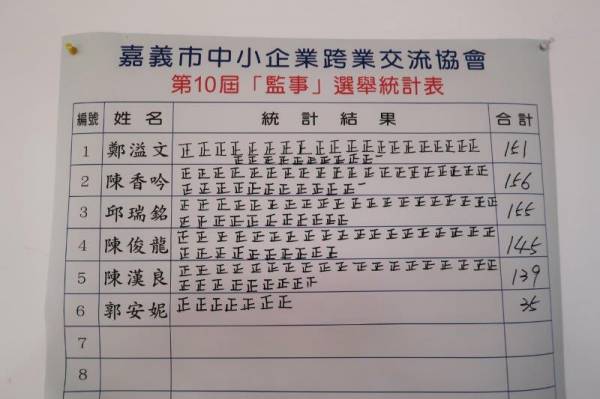 嘉義市中小企業跨業交流協會
第10屆「監事」選舉統計表
編號 姓名 統計結果 合計
1 鄭溢文 正正正正正正正正正正正正正正正正正正正正 151
正正正正正正正正正正一
2 陳香吟 正正正正正正正正正正正正正正正正正正正正正 156
正正正正正正正正正正一
3 邱瑞銘 正正正正正正正正正正正正正正正正正正正正正 155
正正正正正正正正正正
4 陳俊龍 正正正正正正正正正正正正正正正正正正正正 145
正正正正正正正正正
5 陳漢良 正正正正正正正正正正正正正正正正正正正 139
正正正正正正正正正
6 郭安妮 正正正正正正正 35
7
8